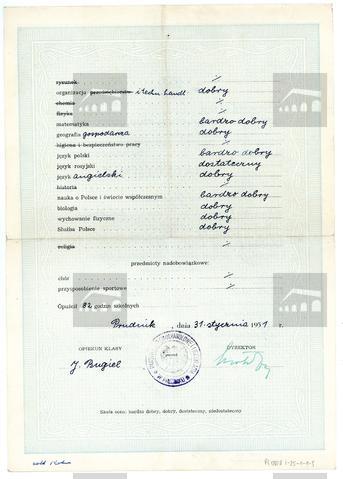 rysunek /
organizacja przedsiębiorstw i techn handl. dobry
chemia /
fizyka /
matematyka bardzo dobry
geografia gospodarcza dobry
higiena i bezpieczeństwo pracy /
język polski bardzo dobry
język rosyjski dostateczny
język angielski dobry
historia /
nauka o Polsce i świecie współczesnym bardzo dobry
biologia dobry
wychowanie fizyczne dobry
Służba Polsce dobry
religia /
przedmioty nadobowiązkowe:
chór /
przysposobienie sportowe /
Opuścił 82 godzin szkolnych
Prudnik, dnia 31. stycznia 1951 r.
OPIEKUN KLASY DYREKTOR
J. Bugiel
Skala ocen: bardzo dobry, dobry, dostateczny, niedostateczny